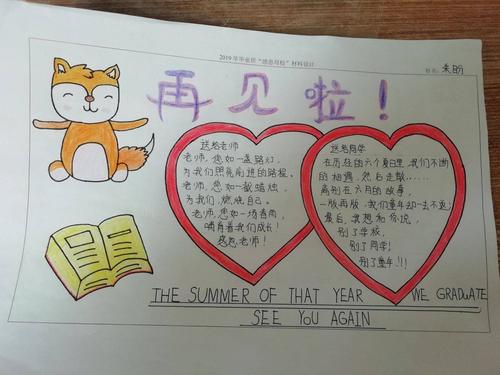 2019年毕业班“感恩母校”材料设计
姓名：朱盼
再见啦！
送给老师
老师，您如一盏路灯，
为我们照亮前进的路程。
老师，您如一截蜡烛，
为我们，燃烧自己。
老师，您如一场春雨，
哺育着我们成长！
感恩老师！
送给同学
在历经的六个夏日里，我们不断
的相遇，然后走散……
离别在六月的故事，
一版再版，我们童年却一去不返！
最后，我想和你说，
别了学校，
别了同学！
别了童年！！！
THE SUMMER OF THAT YEAR WE GRADUATE
SEE YOU AGAIN